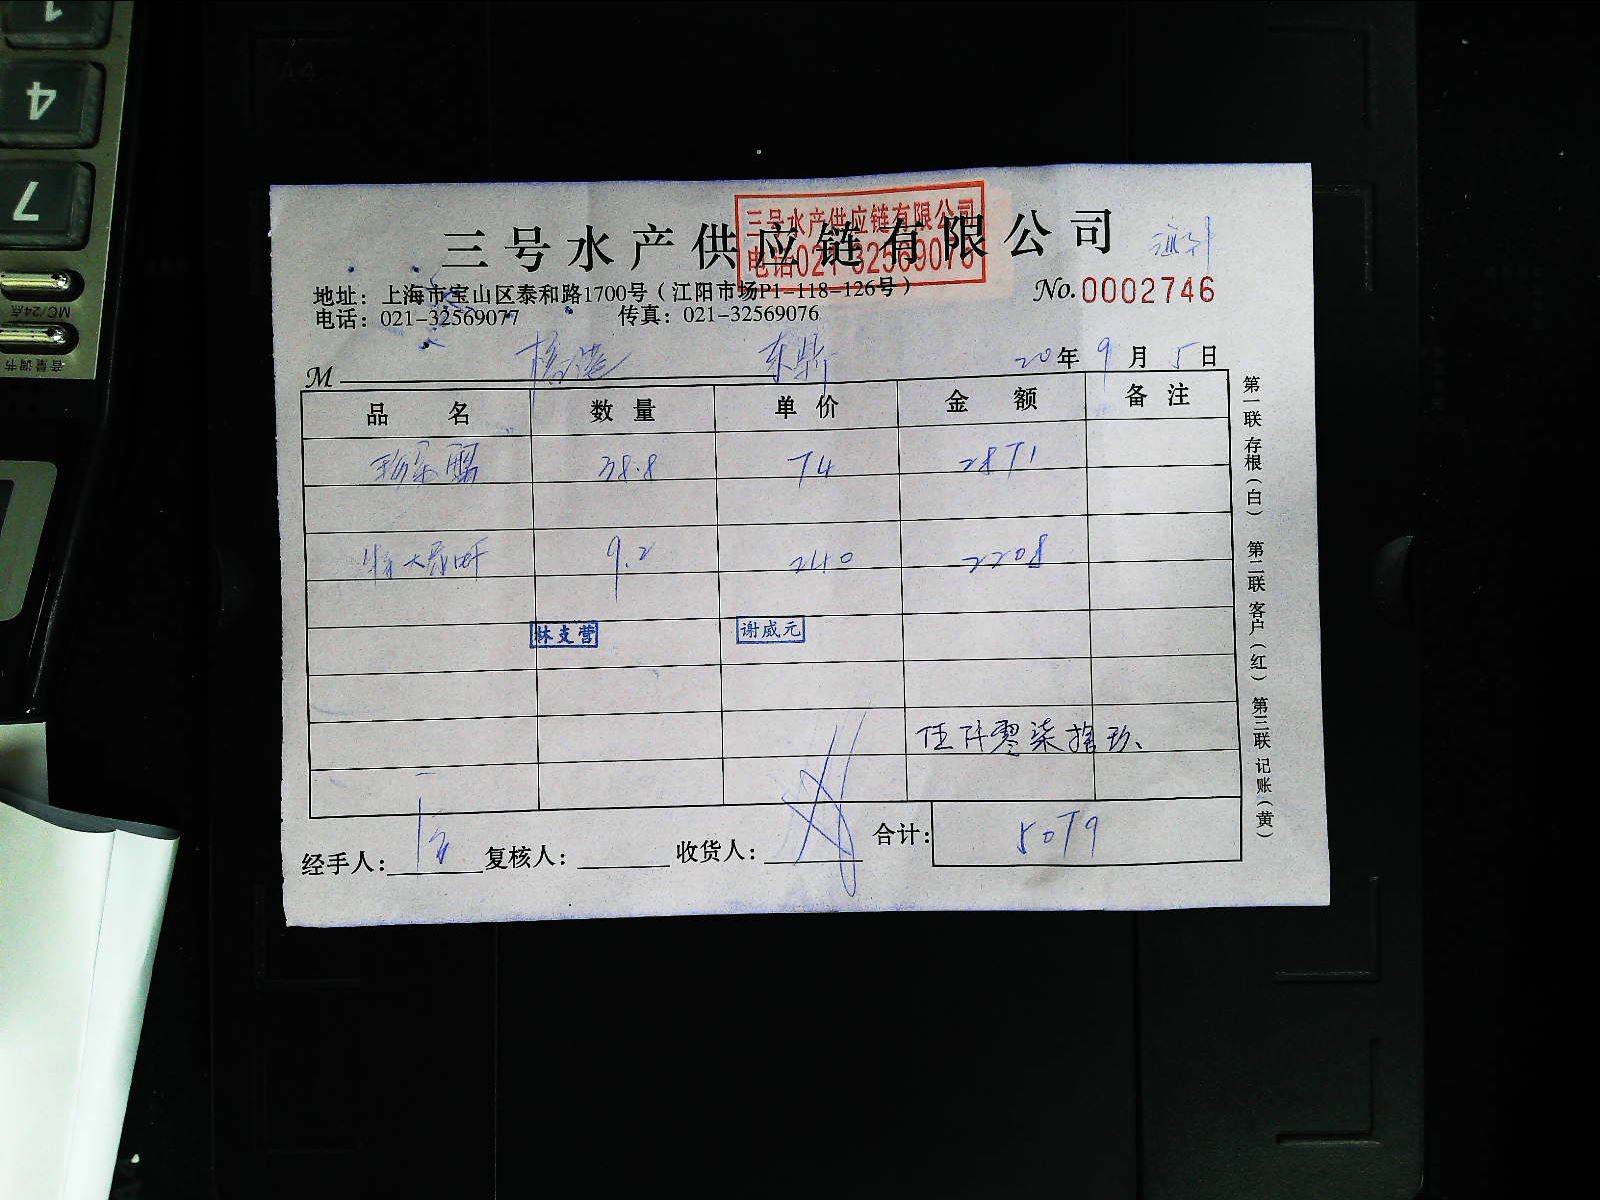 1
4
7
MC/24点
音量调节
A4
三号水产供应链有限公司
三号水产供应链有限公司
电话021-32569076
地址：上海市宝山区泰和路1700号（江阳市场P1-118-126号）
No.0002746
电话：021-32569077 传真：021-32569076
M 东鼎 20年9月5日
品名 数量 单价 金额 备注
38.8 74 2871
9.2 240 2208
林支营 谢威元
伍仟零柒拾玖
经手人： 复核人： 收货人： 合计：5079
第一联 存根（白） 第二联 客户（红） 第三联 记账（黄）